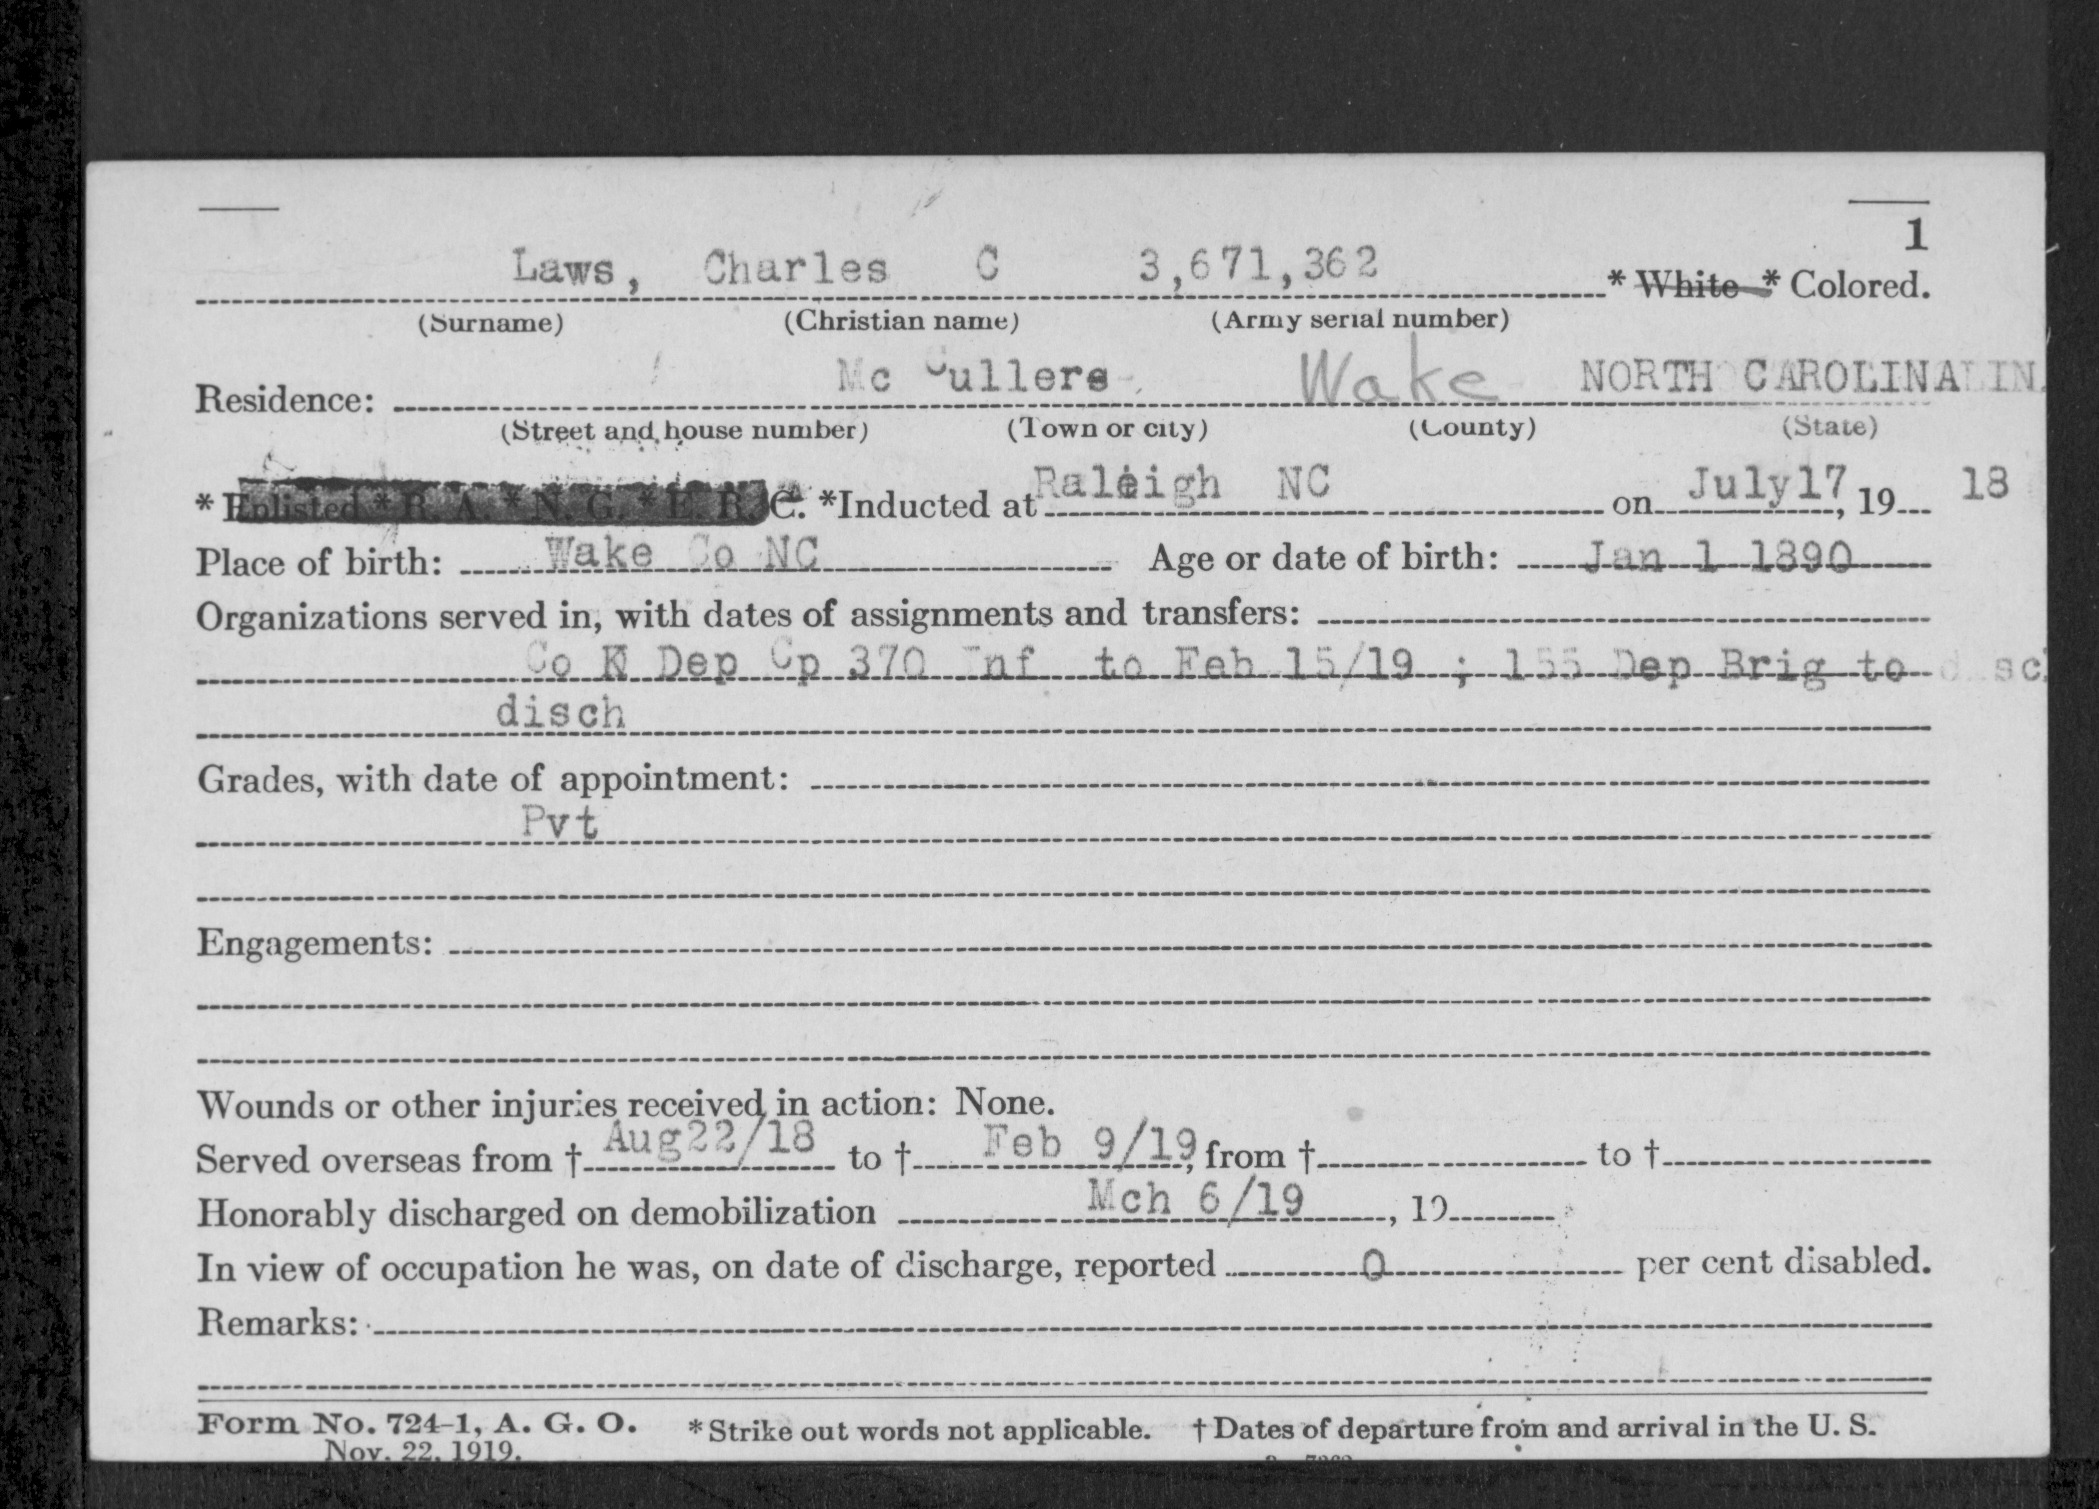 1
Laws, Charles C 3,671,362 * White * Colored.
(Surname) (Christian name) (Army serial number)
Residence: Mc Cullers Wake NORTH CAROLINA
(Street and house number) (Town or city) (County) (State)
* Enlisted * R. A. * N. G. * E. R. C. *Inducted at Raleigh NC on July17, 19 18
Place of birth: Wake Co NC Age or date of birth: Jan 1 1890
Organizations served in, with dates of assignments and transfers:
Co K Dep Cp 370 Inf to Feb 15/19 ; 155 Dep Brig to
disch
Grades, with date of appointment:
Pvt
Engagements:
Wounds or other injuries received in action: None.
Served overseas from † Aug22/18 to † Feb 9/19, from † to †
Honorably discharged on demobilization Mch 6/19, 19
In view of occupation he was, on date of discharge, reported 0 per cent disabled.
Remarks:
Form No. 724-1, A. G. O. * Strike out words not applicable. † Dates of departure from and arrival in the U. S.
Nov. 22, 1919.